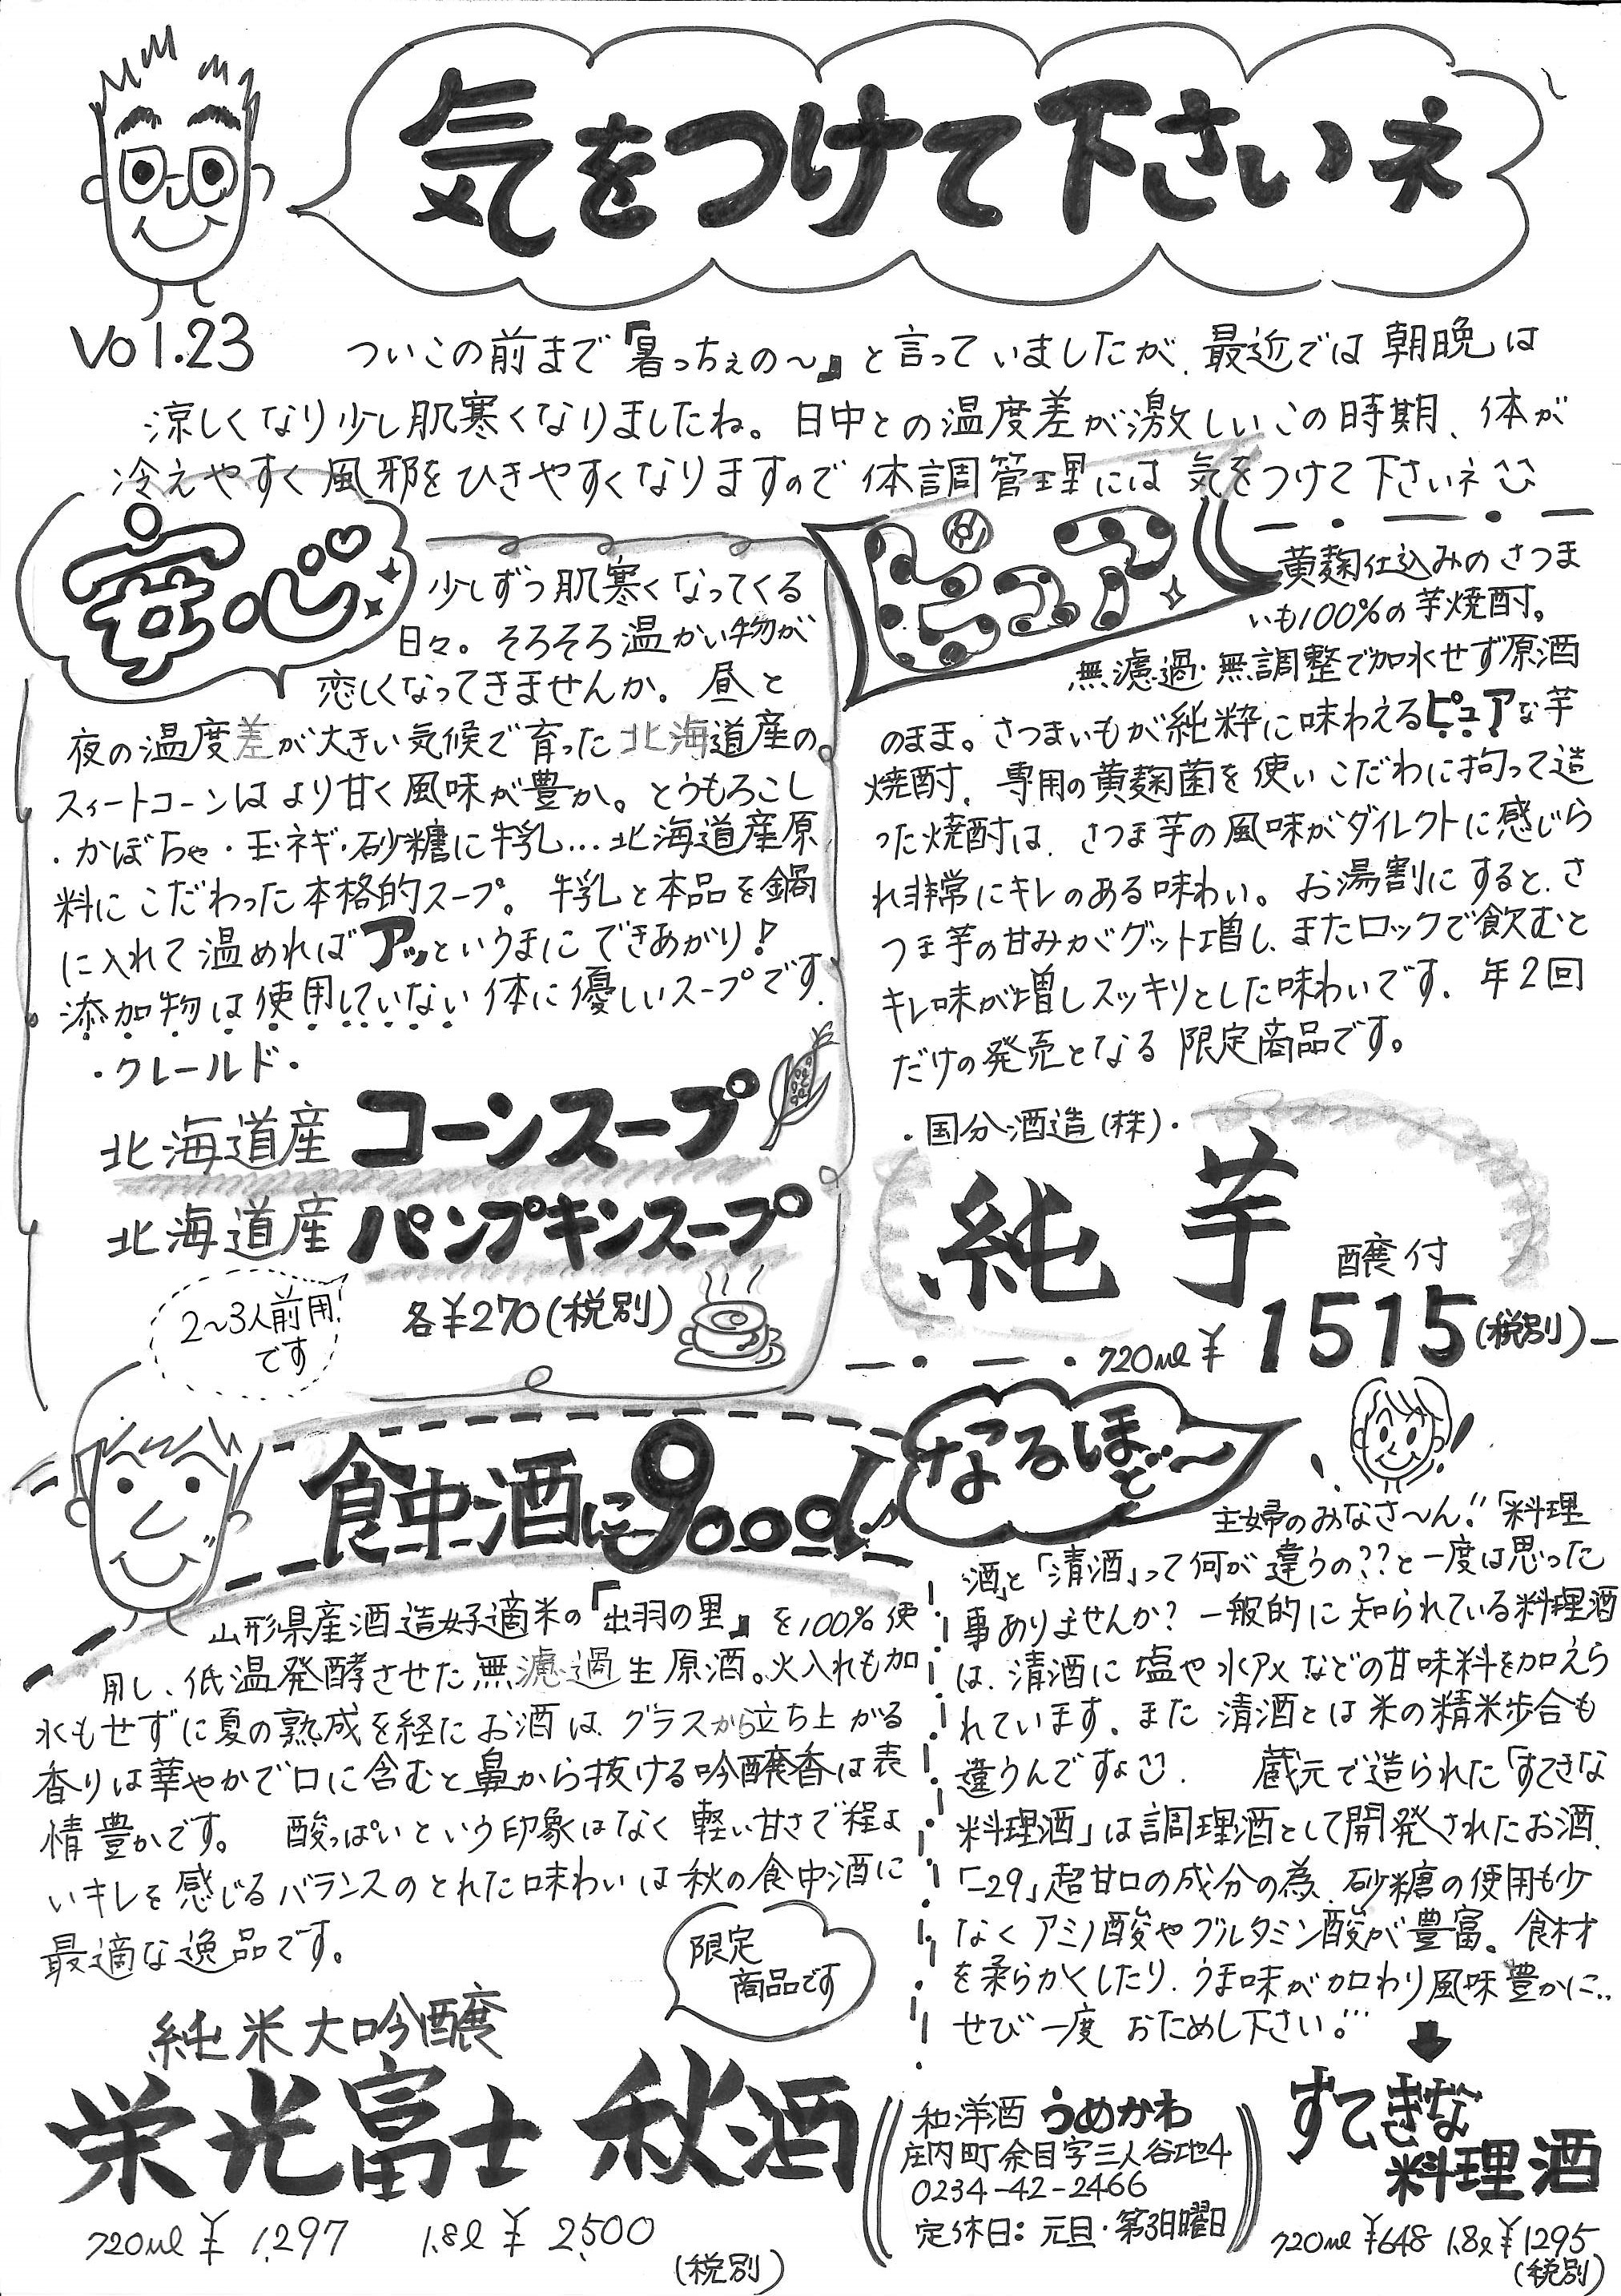 気をつけて下さいネ
Vol.23
ついこの前まで『暑っちぇの〜』と言っていましたが、最近では朝晩は
涼しくなり少し肌寒くなりましたね。日中との温度差が激しいこの時期、体が
冷えやすく風邪をひきやすくなりますので体調管理には気をつけて下さいネ
安心
少しずつ肌寒くなってくる
日々。そろそろ温かい物が
恋しくなってきませんか。昼と
夜の温度差が大きい気候で育った北海道産の
スィートコーンはより甘く風味が豊か。とうもろこし
・かぼちゃ・玉ネギ・砂糖に牛乳…北海道産原
料にこだわった本格的スープ。牛乳と本品を鍋
に入れて温めればアッというまにできあがり!
添加物は使用していない体に優しいスープです.
・クレールド・
北海道産コーンスープ
北海道産パンプキンスープ
2〜3人前用
です
各¥270(税別)
ピュア
黄麹仕込みのさつま
いも100%の芋焼酎。
無濾過・無調整で加水せず原酒
のまま。さつまいもが純粋に味わえるピュアな芋
焼酎、専用の黄麹菌を使いこだわに拘って造
った焼酎は、さつま芋の風味がダイレクトに感じら
れ非常にキレのある味わい。お湯割にすると、さ
つま芋の甘みがグット増し、またロックで飲むと
キレ味が増しスッキリとした味わいです.年2回
だけの発売となる限定商品です。
・国分酒造(株)・
純芋
醸付
720ml ¥1515(税別)
食中酒にgood♪
山形県産酒造好適米の『出羽の里』を100%使
用し、低温発酵させた無濾過生原酒。火入れも加
水もせずに夏の熟成を経たお酒は、グラスから立ち上がる
香りは華やかで口に含むと鼻から抜ける吟醸香は表
情豊かです。酸っぱいという印象はなく軽い甘さで程よ
いキレを感じるバランスのとれた味わいは秋の食中酒に
最適な逸品です。
限定
商品です
純米大吟醸
栄光富士 秋酒
720ml ¥1,297 1.8l ¥2,500
(税別)
なるほど〜
主婦のみなさ〜ん!!「料理
酒」と「清酒」って何が違うの??と一度は思った
事ありませんか?一般的に知られている料理酒
は、清酒に塩や水アメなどの甘味料を加えら
れています.また清酒とは米の精米歩合も
違うんですよ.蔵元で造られた「すてきな
料理酒」は調理酒として開発されたお酒.
「-29」超甘口の成分の為、砂糖の使用も少
なくアミノ酸やグルタミン酸が豊富。食材
を柔らかくしたり、うま味が加わり風味豊かに..
ぜひ一度おためし下さい。
すてきな
料理酒
720ml ¥648 1.8l ¥1295
(税別)
和洋酒 うめかわ
庄内町余目字三人谷地4
0234-42-2466
定休日:元旦・第3日曜日